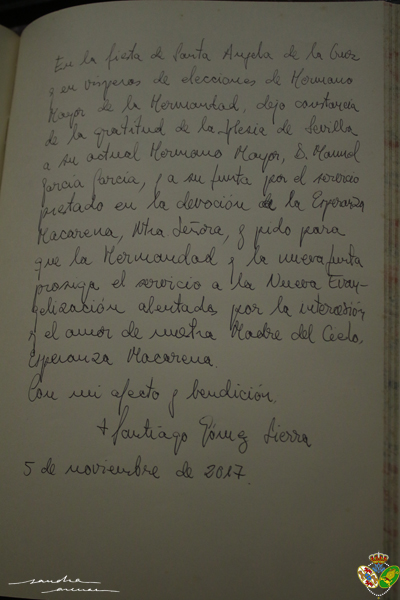 En la fiesta de Santa Angela de la Cruz
y en vísperas de elecciones de Hermano
Mayor de la Hermandad, dejo constancia
de la gratitud de la Iglesia de Sevilla
a su actual Hermano Mayor, D. Manuel
García García, y a su junta por el servicio
prestado en la devoción de la Esperanza
Macarena, Ntra Señora, y pido para
que la Hermandad y la nueva junta
prosiga el servicio a la Nueva Evan-
gelización alentados por la intercesión
y el amor de nuestra Madre del Cielo,
Esperanza Macarena.
Con mi afecto y bendición,
+ Santiago Gómez Sierra
5 de noviembre de 2017.
sandra